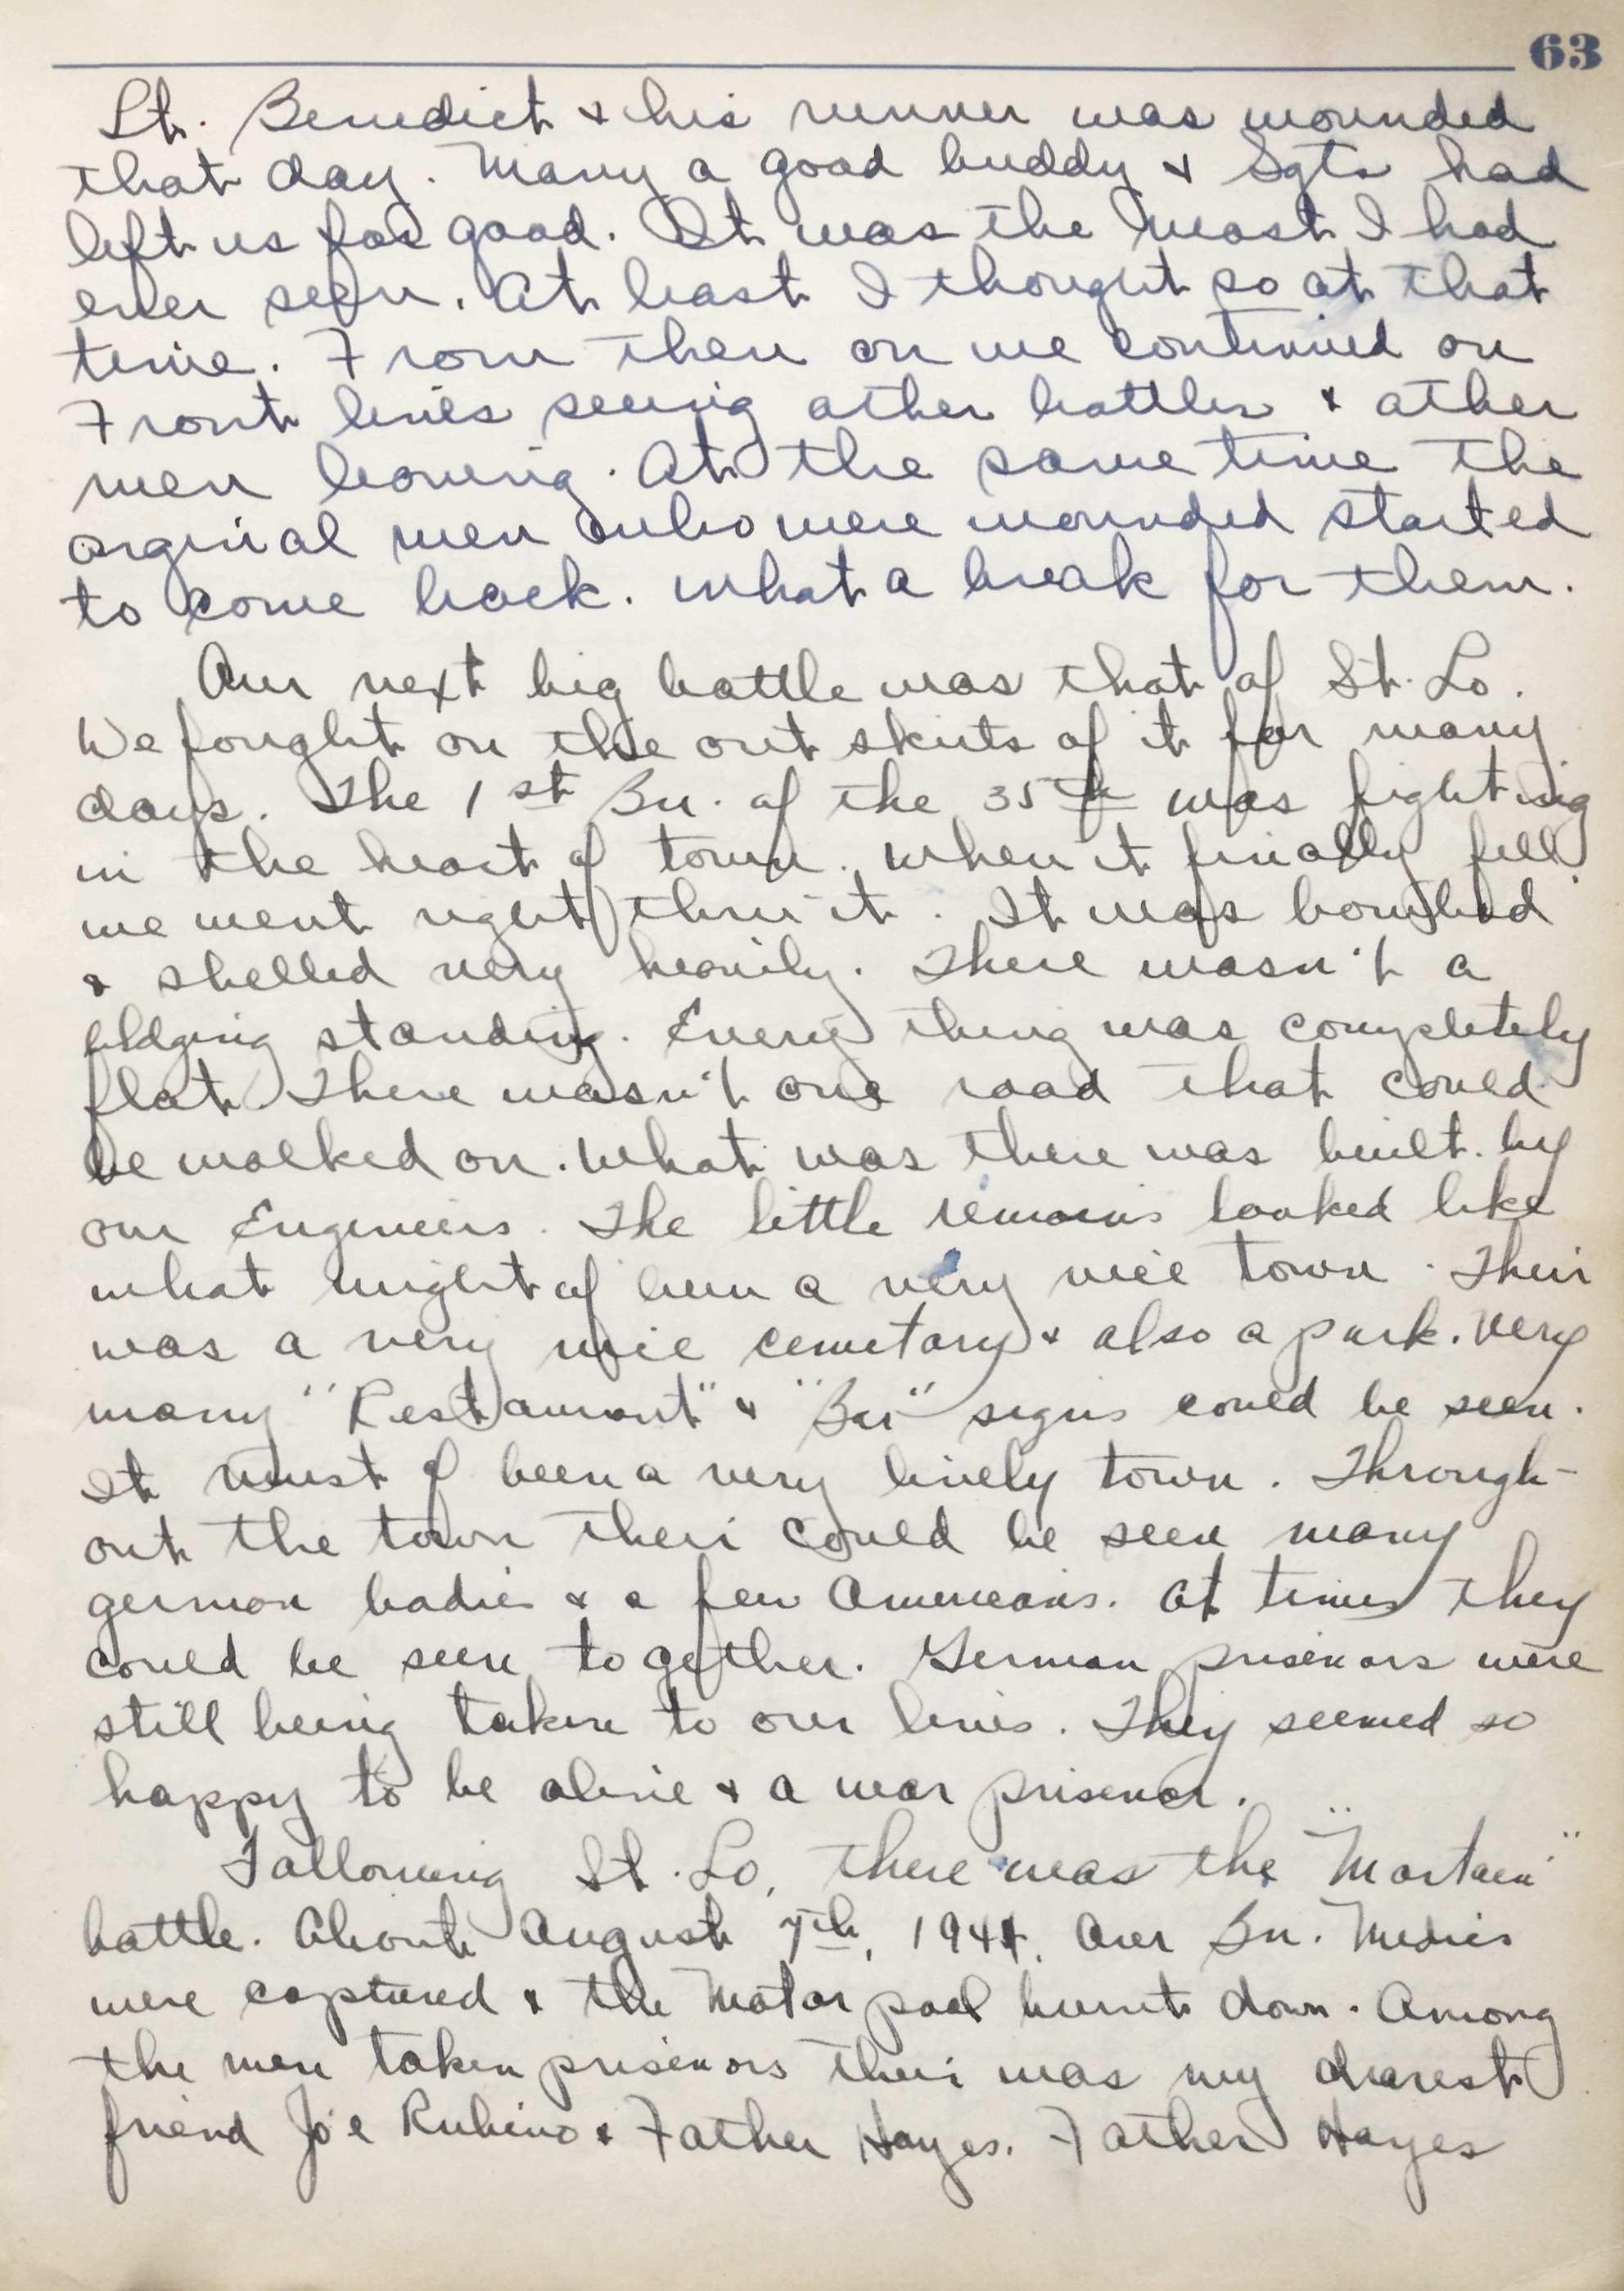 63
Lt. Benedict & his runner was wounded
that day. Many a good buddy & Sgts had
left us for good. It was the most I had
ever seen. At least I thought so at that
time. From then on we continued on
Front lines seeing other battles & other
men leaving. At the same time the
orginal men who were wounded started
to come back. What a break for them.
Our next big battle was that of St. Lo.
We fought on the out skirts of it for many
days. The 1st Bn. of the 35th was fighting
in the heart of town. When it finally fell
we went right thru it. It was bombed
& shelled very heavily. There wasn't a
bldging standing. Every thing was completely
flat. There wasn't one road that could
be walked on. What was there was built by
our Engineers. The little remains looked like
what might of been a very nice town. Their
was a very nice cemetary & also a park. Very
many "Restaurant" & "Bar" signs could be seen.
It must of been a very lively town. Through-
out the town their could be seen many
german bodies & a few Americans. At times they
could be seen together. German prisenors were
still being taken to our lines. They seemed so
happy to be alive & a war prisenor.
Following St. Lo, there was the "Mortain"
battle. About August 7th, 1944. Our Bn. Medics
were captured & the Motor pool burnt down. Among
the men taken prisenors their was my dearest
friend Joe Rubino & Father Hayes. Father Hayes